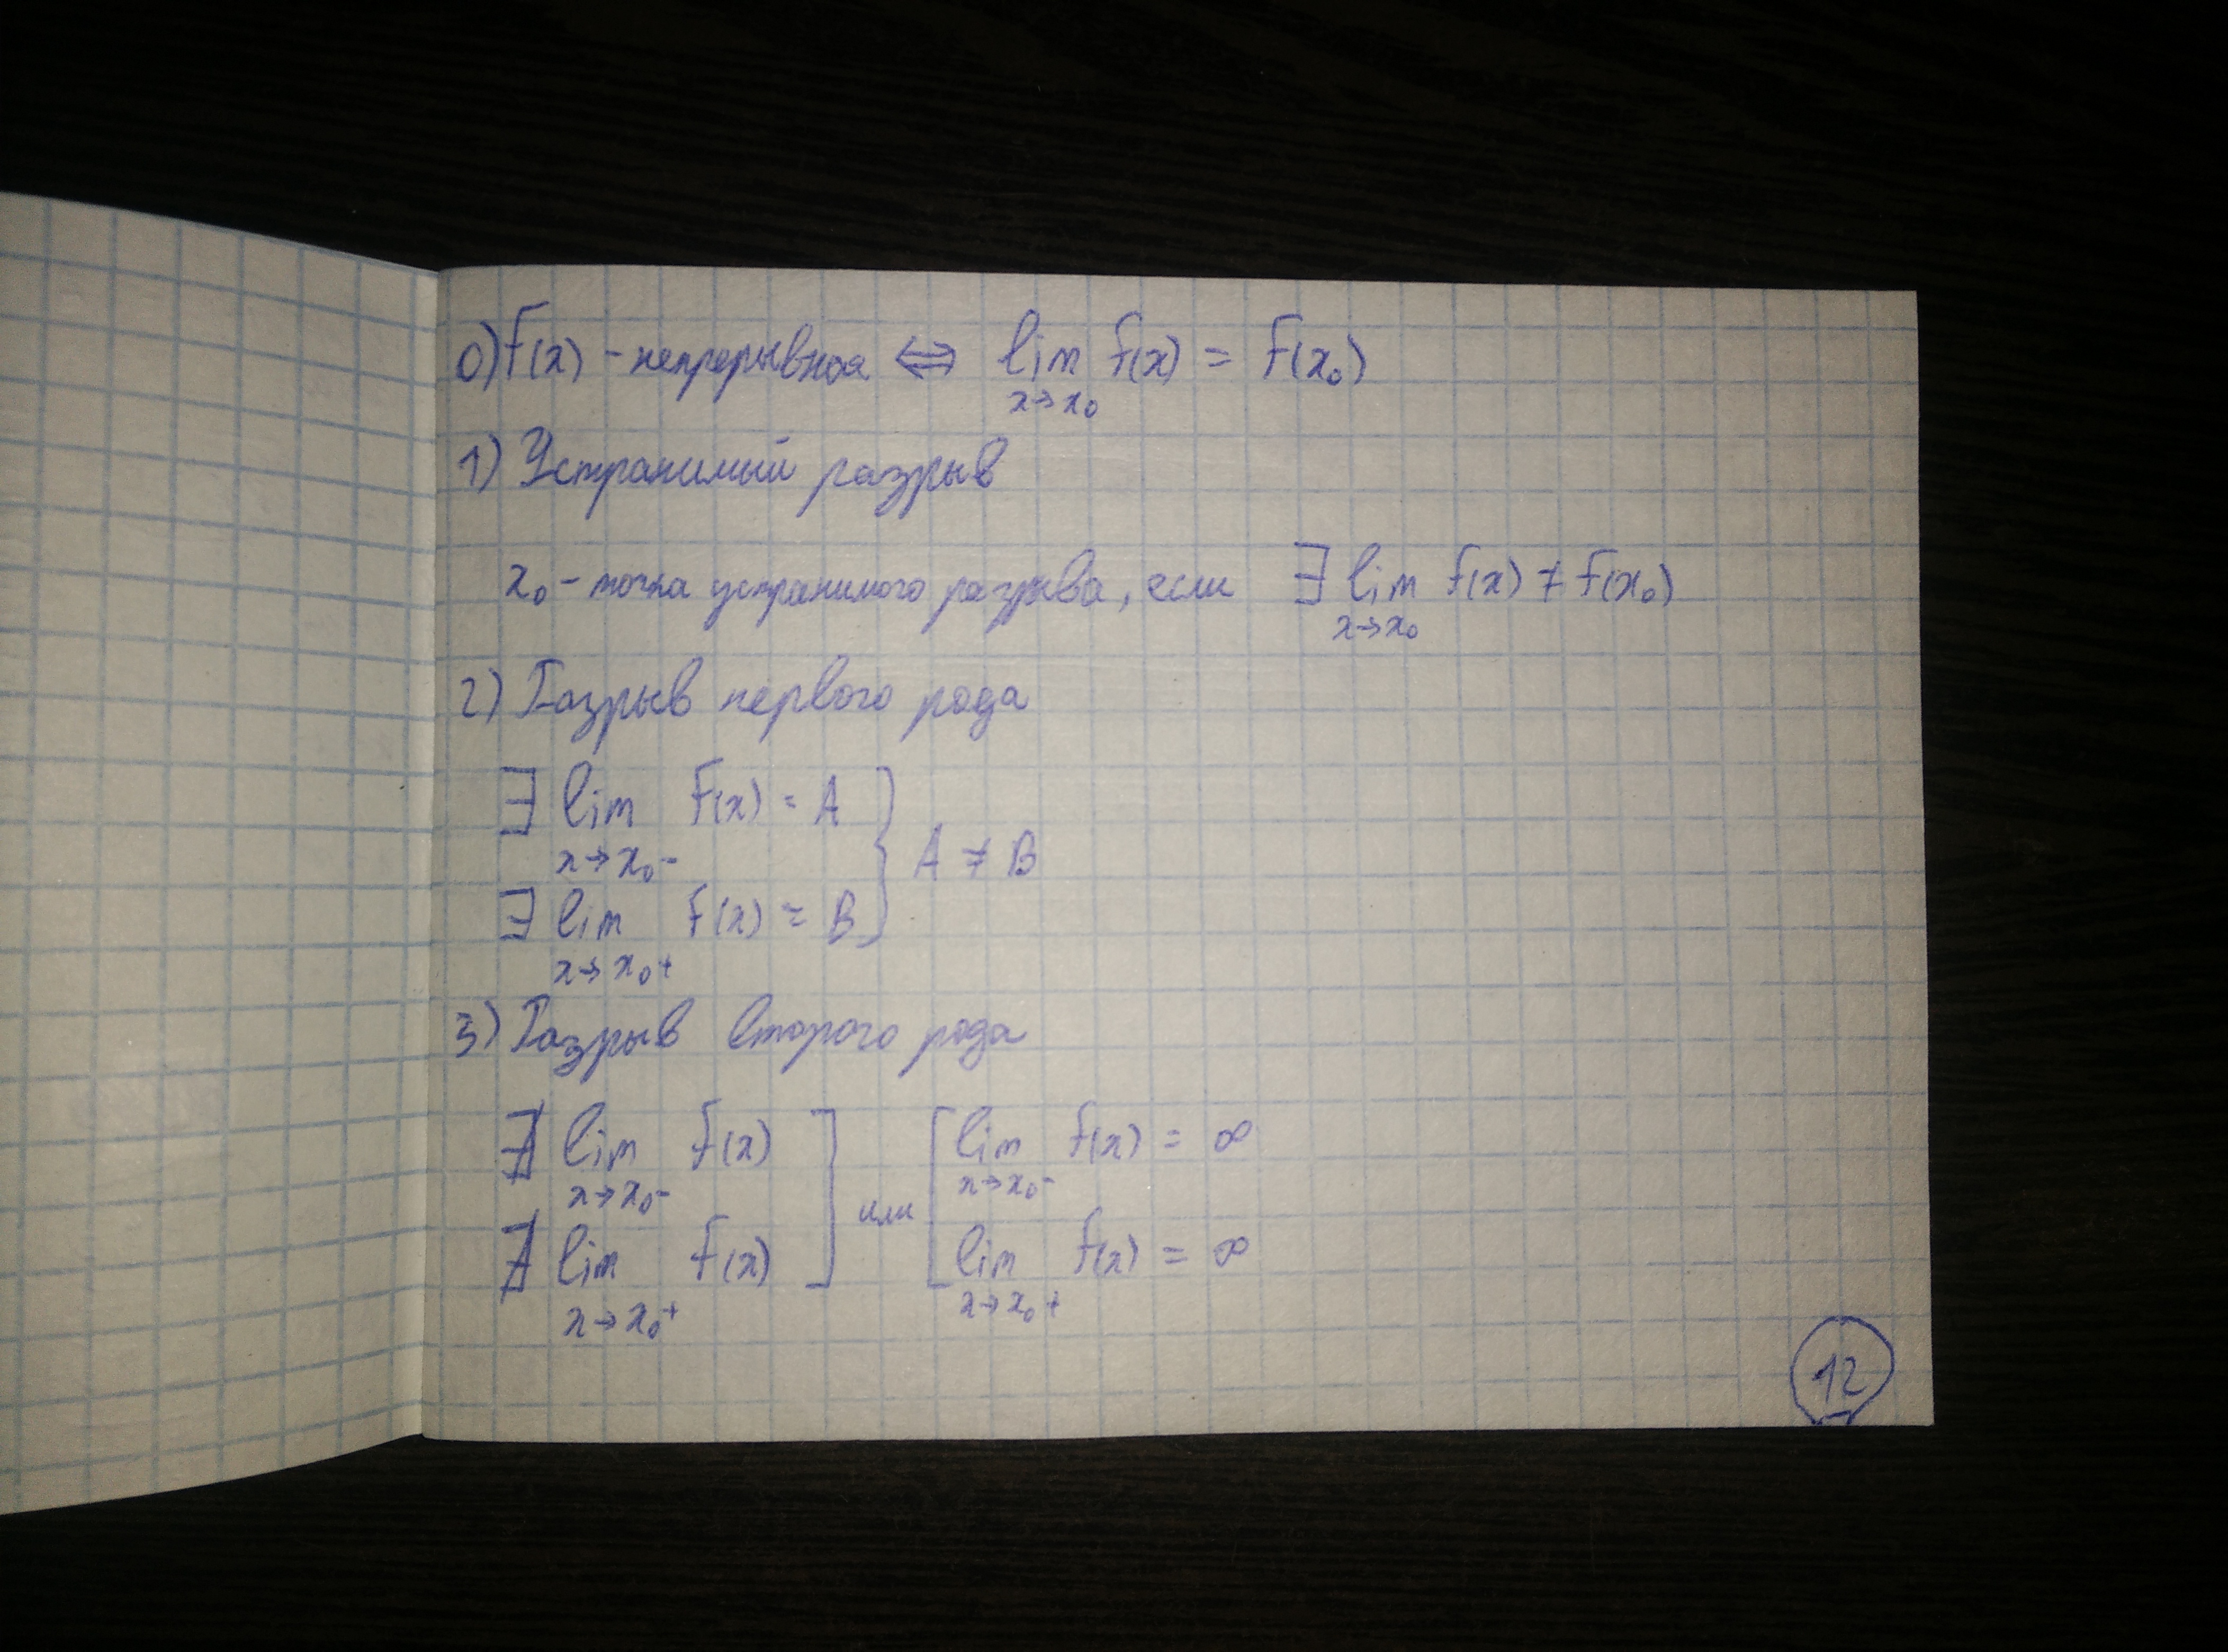 0) f(x) - непрерывная ⇔ lim f(x) = f(x₀)
x→x₀
1) Устранимый разрыв
x₀ - точка устранимого разрыва, если ∃ lim f(x) ≠ f(x₀)
x→x₀
2) Разрыв первого рода
∃ lim f(x) = A
x→x₀-
} A ≠ B
∃ lim f(x) = B
x→x₀+
3) Разрыв второго рода
∄ lim f(x) ] [ lim f(x) = ∞
x→x₀- x→x₀-
или
∄ lim f(x) ] [ lim f(x) = ∞
x→x₀+ x→x₀+
12